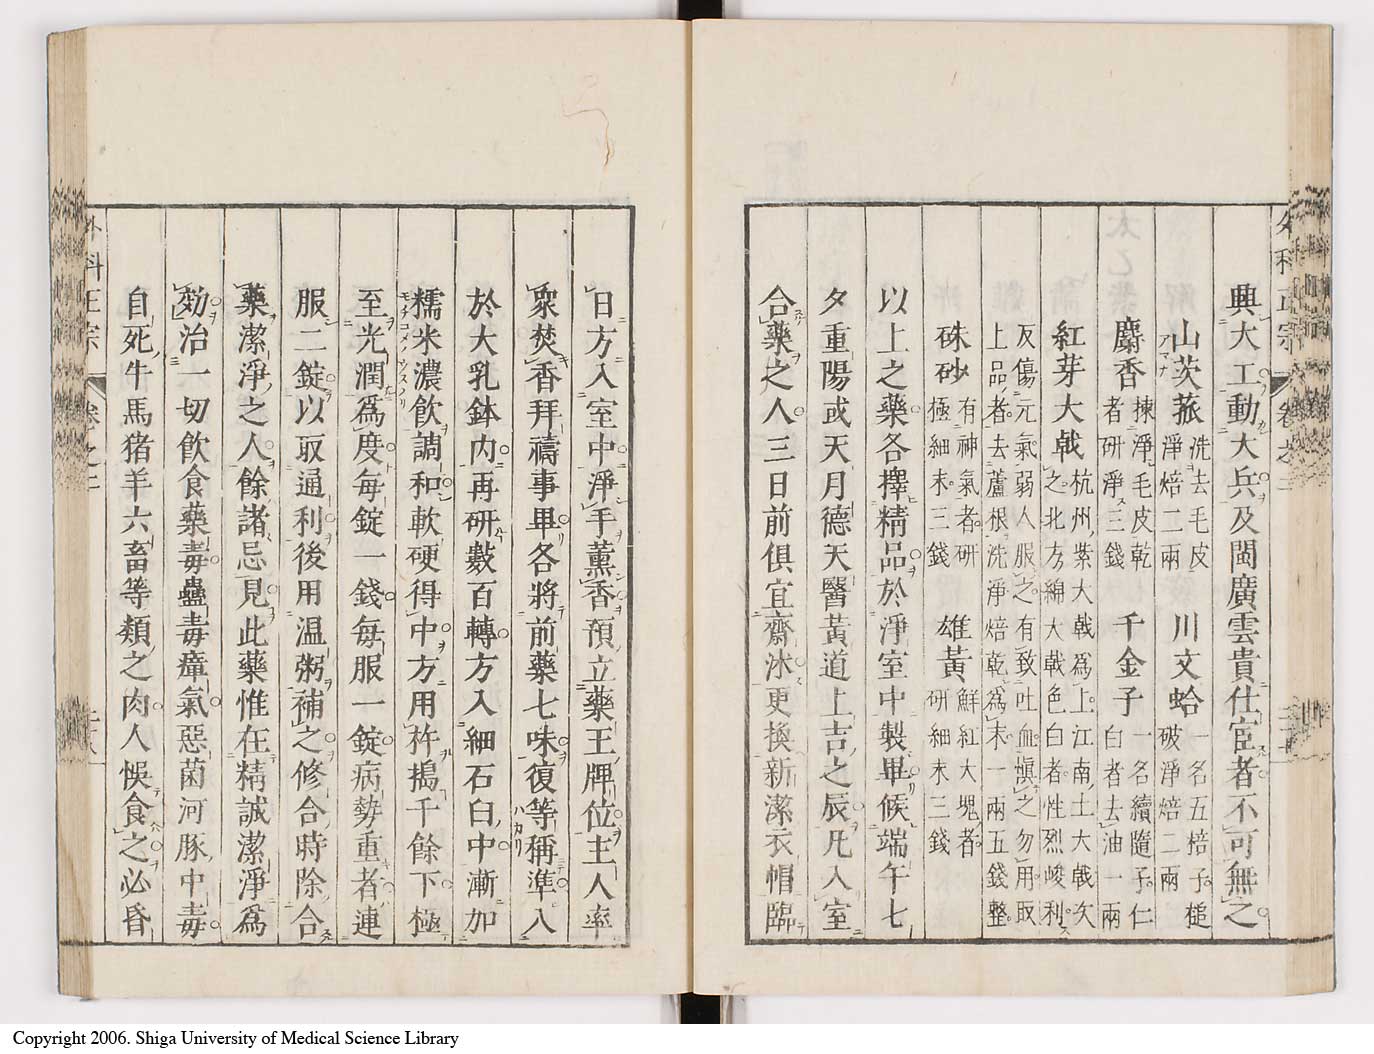 外科正宗 卷之二
興大工動大兵及閩廣雲貴仕宦者不可無之
山茨菰 洗去毛皮淨焙二兩 川文蛤 一名五棓子槌破淨焙二兩
麝香 揀淨毛皮乾者研淨三錢 千金子 一名續隨子仁白者去油一兩
紅芽大戟 杭州紫大戟爲上江南土大戟次之北方綿大戟色白者性烈峻利
反傷元氣弱人服之有致吐血愼之勿用取上品者去蘆根洗淨焙乾爲末一兩五錢整
硃砂 有神氣者研極細末三錢 雄黃 鮮紅大塊者研細末三錢
以上之藥各擇精品於淨室中製畢候端午七
夕重陽或天月德天醫黃道上吉之辰凡入室
合藥之人三日前俱宜齋沐更換新潔衣帽臨
日方入室中淨手薰香預立藥王牌位主人率
衆焚香拜禱事畢各將前藥七味復等稱準入
於大乳鉢內再研數百轉方入細石臼中漸加
糯米濃飮調和軟硬得中方用杵搗千餘下極
至光潤爲度每錠一錢每服一錠病勢重者連
服二錠以取通利後用温粥補之修合時除合
藥潔淨之人餘諸忌見此藥惟在精誠潔淨爲
効治一切飮食藥毒蠱毒瘴氣惡菌河豚中毒
自死牛馬猪羊六畜等類之肉人悞食之必昏
外科正宗 卷之二
Copyright 2006. Shiga University of Medical Science Library